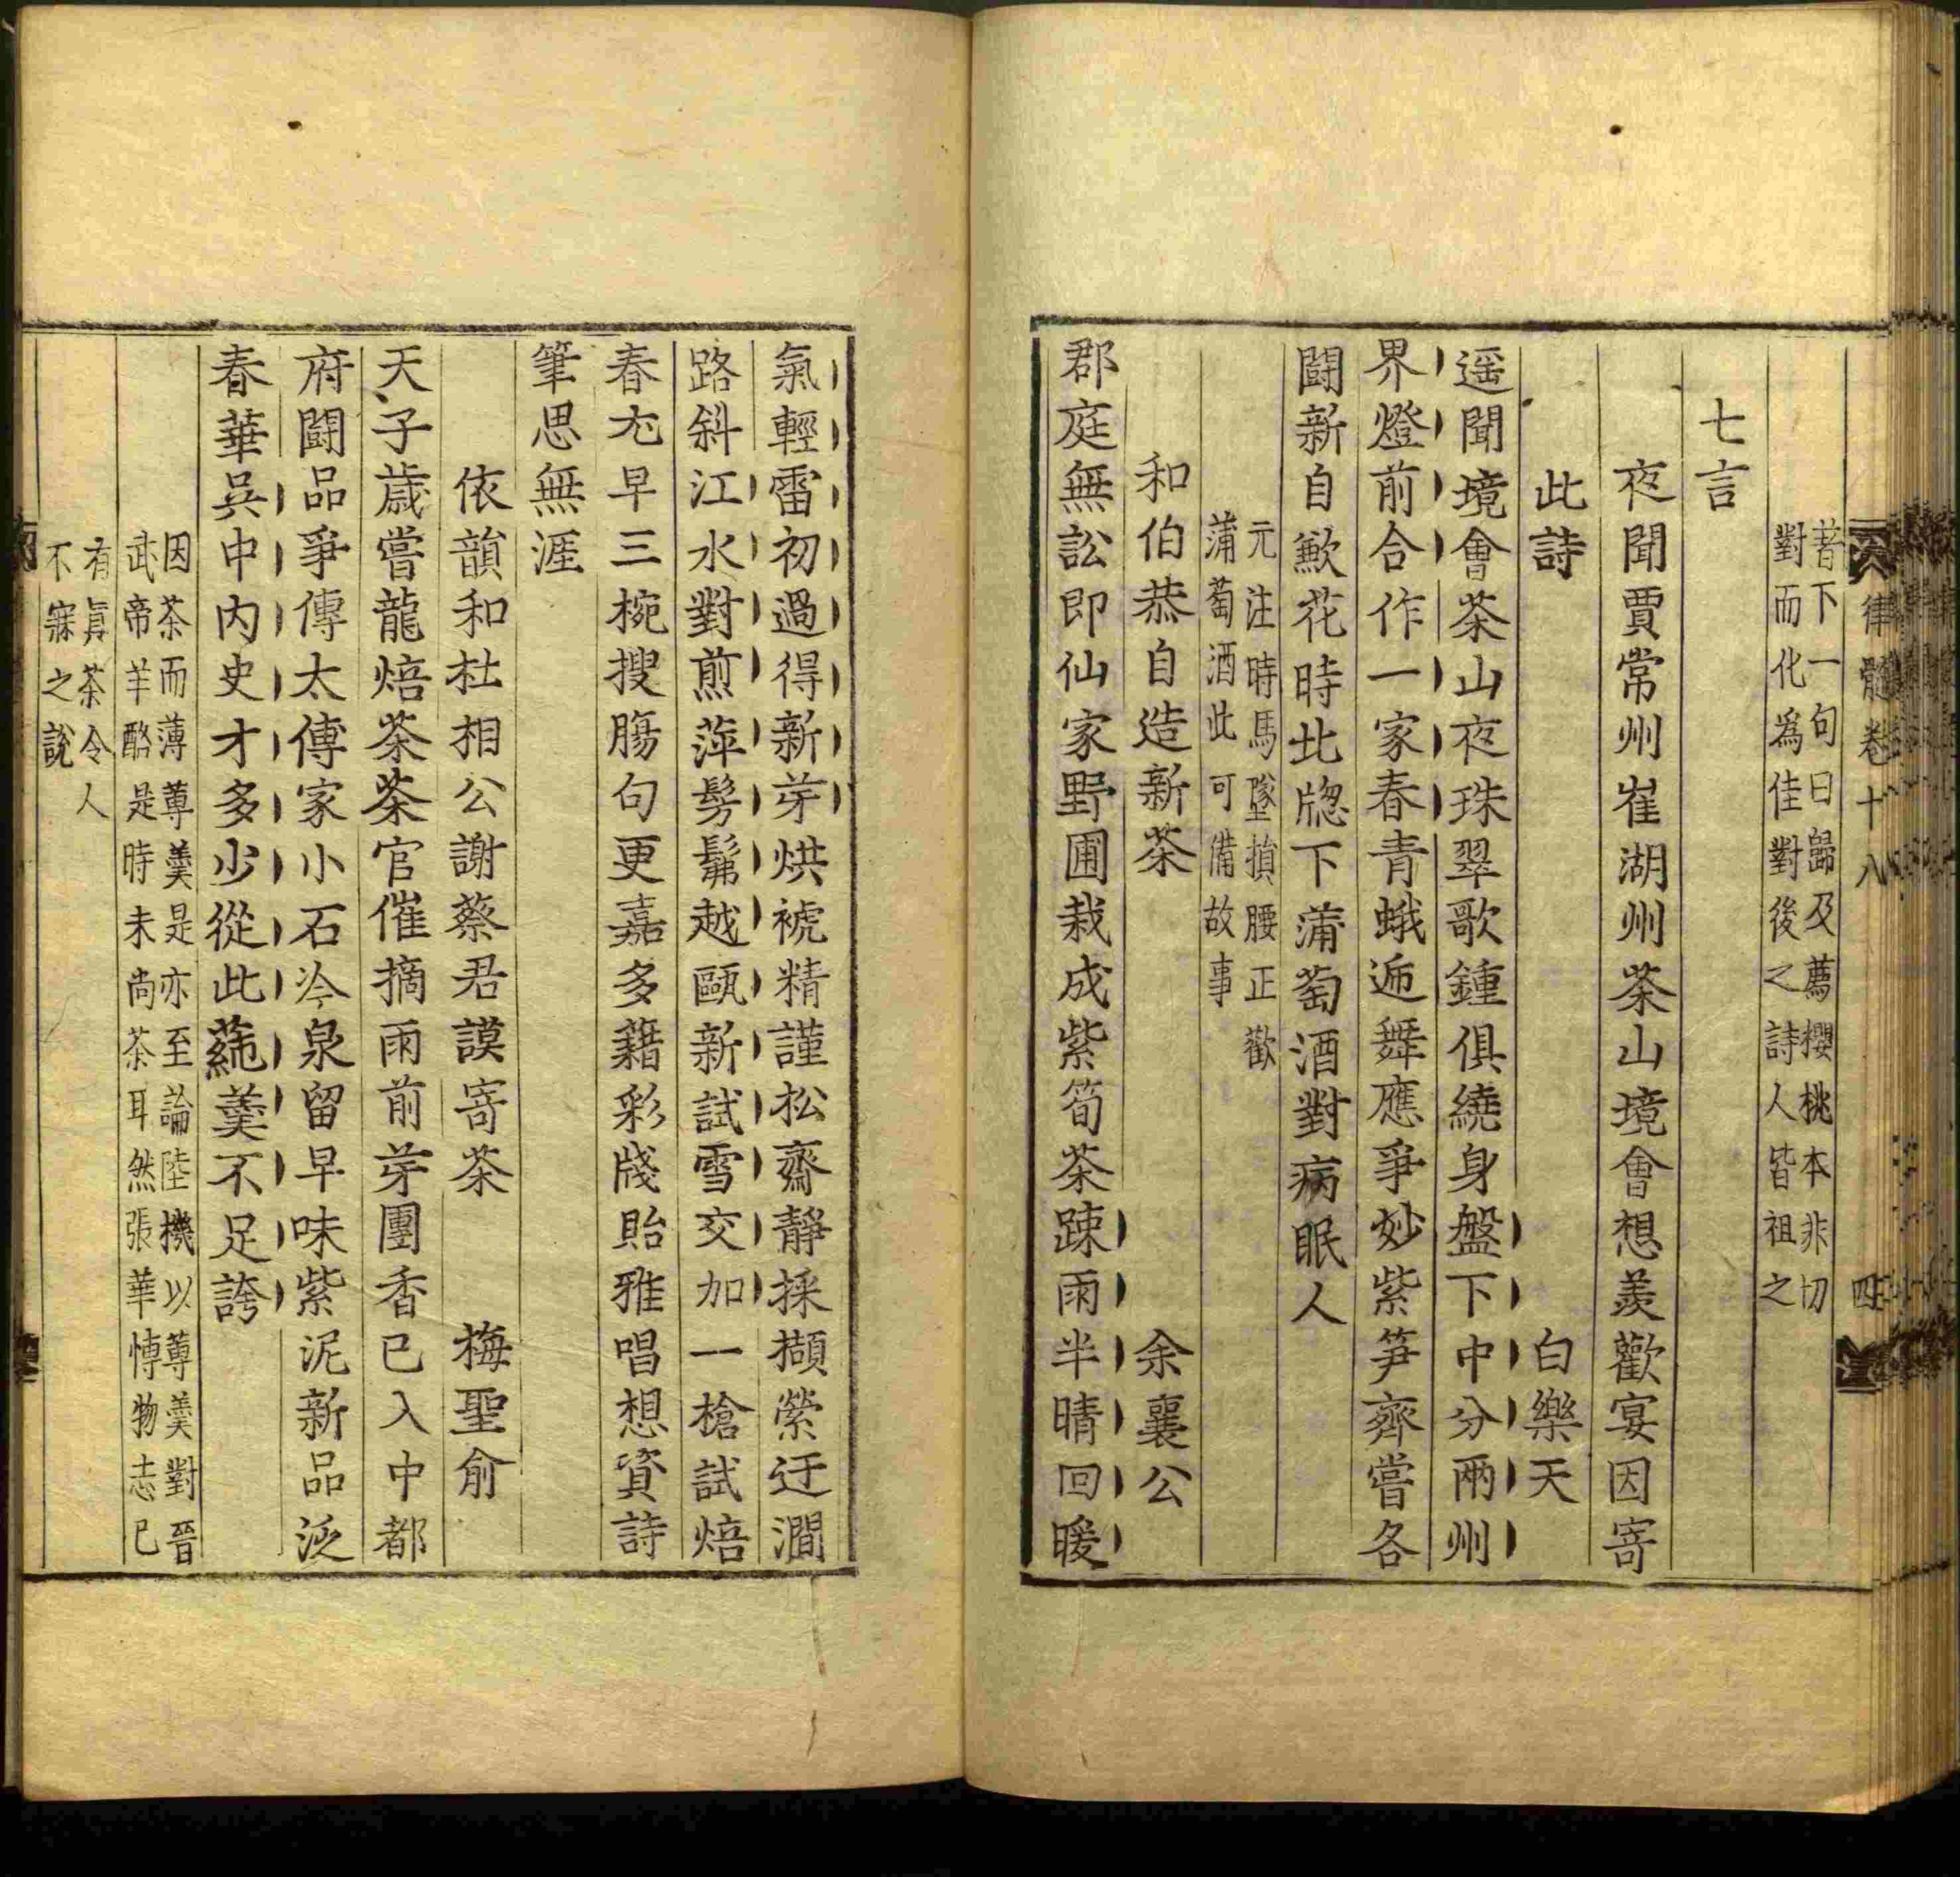 律髓卷十八 四
著下一句曰歸及薦櫻桃本非切
對而化爲佳對後之詩人皆祖之
七言
夜聞賈常州崔湖州茶山境會想羨歡宴因寄
此詩 白樂天
遥聞境會茶山夜珠翠歌鍾俱繞身盤下中分兩州
界燈前合作一家春青蛾逓舞應爭妙紫笋齊嘗各
鬪新自歎花時北牎下蒲萄酒對病眠人
元注時馬墜損腰正歡
蒲萄酒此可備故事
和伯恭自造新茶 余襄公
郡庭無訟即仙家野圃栽成紫筍茶踈雨半晴回暖
氣輕雷初過得新芽烘褫精謹松齋靜採擷縈迂澗
路斜江水對煎萍髣髴越甌新試雪交加一槍試焙
春尤早三椀搜腸句更嘉多藉彩牋貽雅唱想資詩
筆思無涯
依韻和杜相公謝蔡君謨寄茶 梅聖俞
天子歲嘗龍焙茶茶官催摘雨前芽團香已入中都
府鬪品爭傳太傅家小石冷泉留早味紫泥新品泛
春華吳中内史才多少從此蓴羹不足誇
因茶而薄蓴羹是亦至論陸機以蓴羹對晉
武帝羊酪是時未尚茶耳然張華博物志已
有眞茶令人
不寐之說